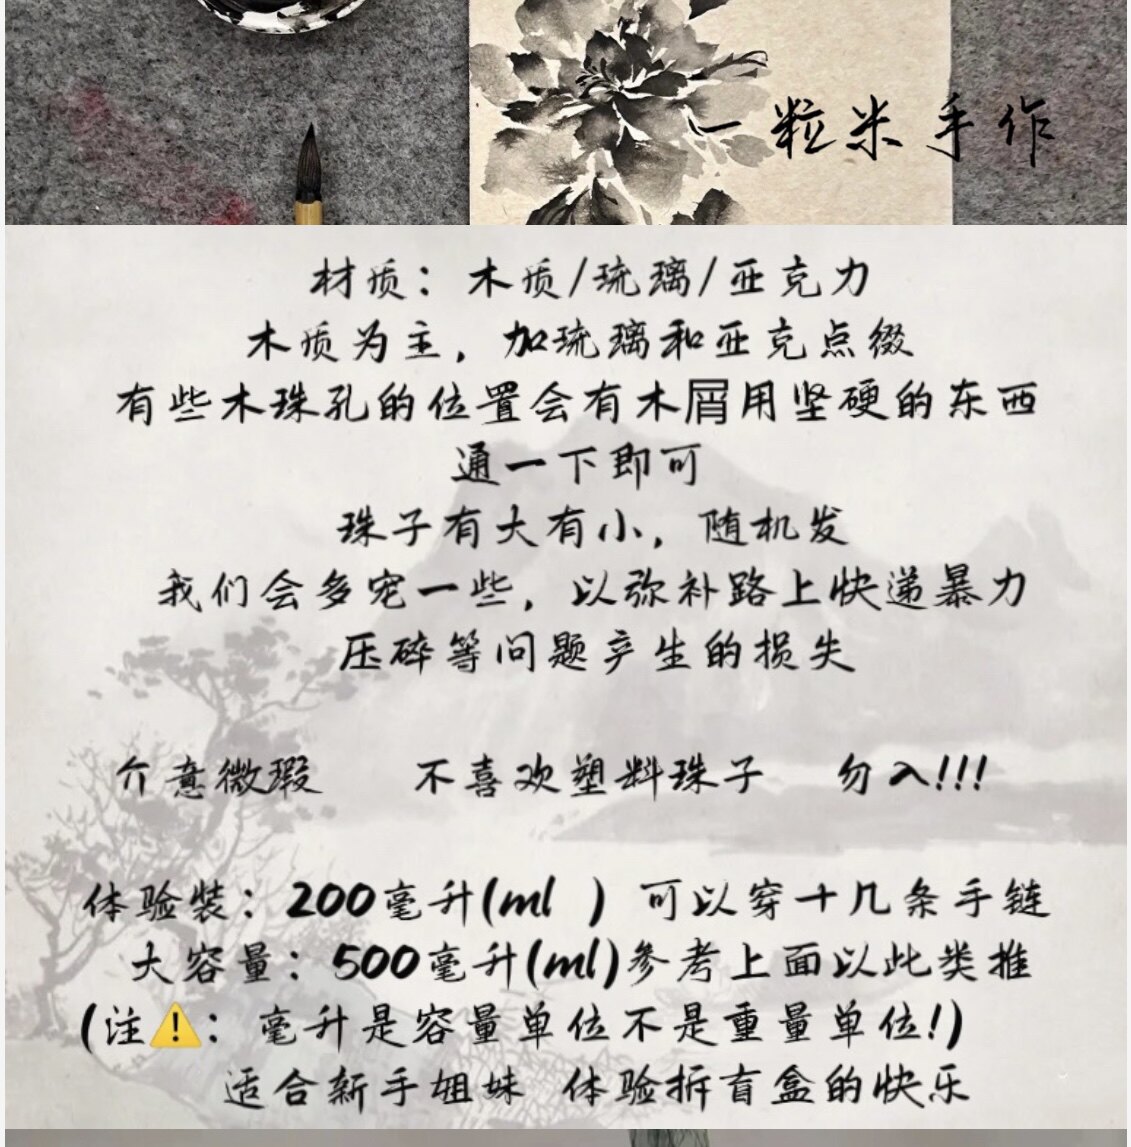 一粒米手作
材质：木质/琉璃/亚克力
木质为主，加琉璃和亚克点缀
有些木珠孔的位置会有木屑用坚硬的东西
通一下即可
珠子有大有小，随机发
我们会多宠一些，以弥补路上快递暴力
压碎等问题产生的损失
介意微瑕 不喜欢塑料珠子 勿入!!!
体验装：200毫升(ml ) 可以穿十几条手链
大容量：500毫升(ml)参考上面以此类推
(注⚠️：毫升是容量单位不是重量单位!)
适合新手姐妹 体验拆盲盒的快乐